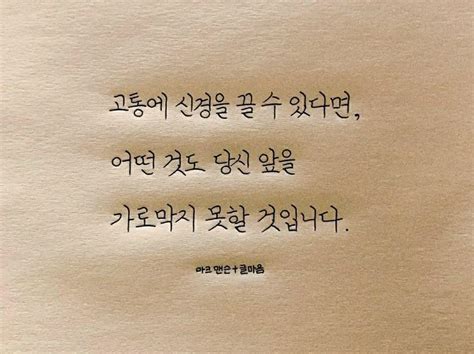 고통에 신경을 끌 수 있다면,
어떤 것도 당신 앞을
가로막지 못할 것입니다.
마크 맨슨+글마음